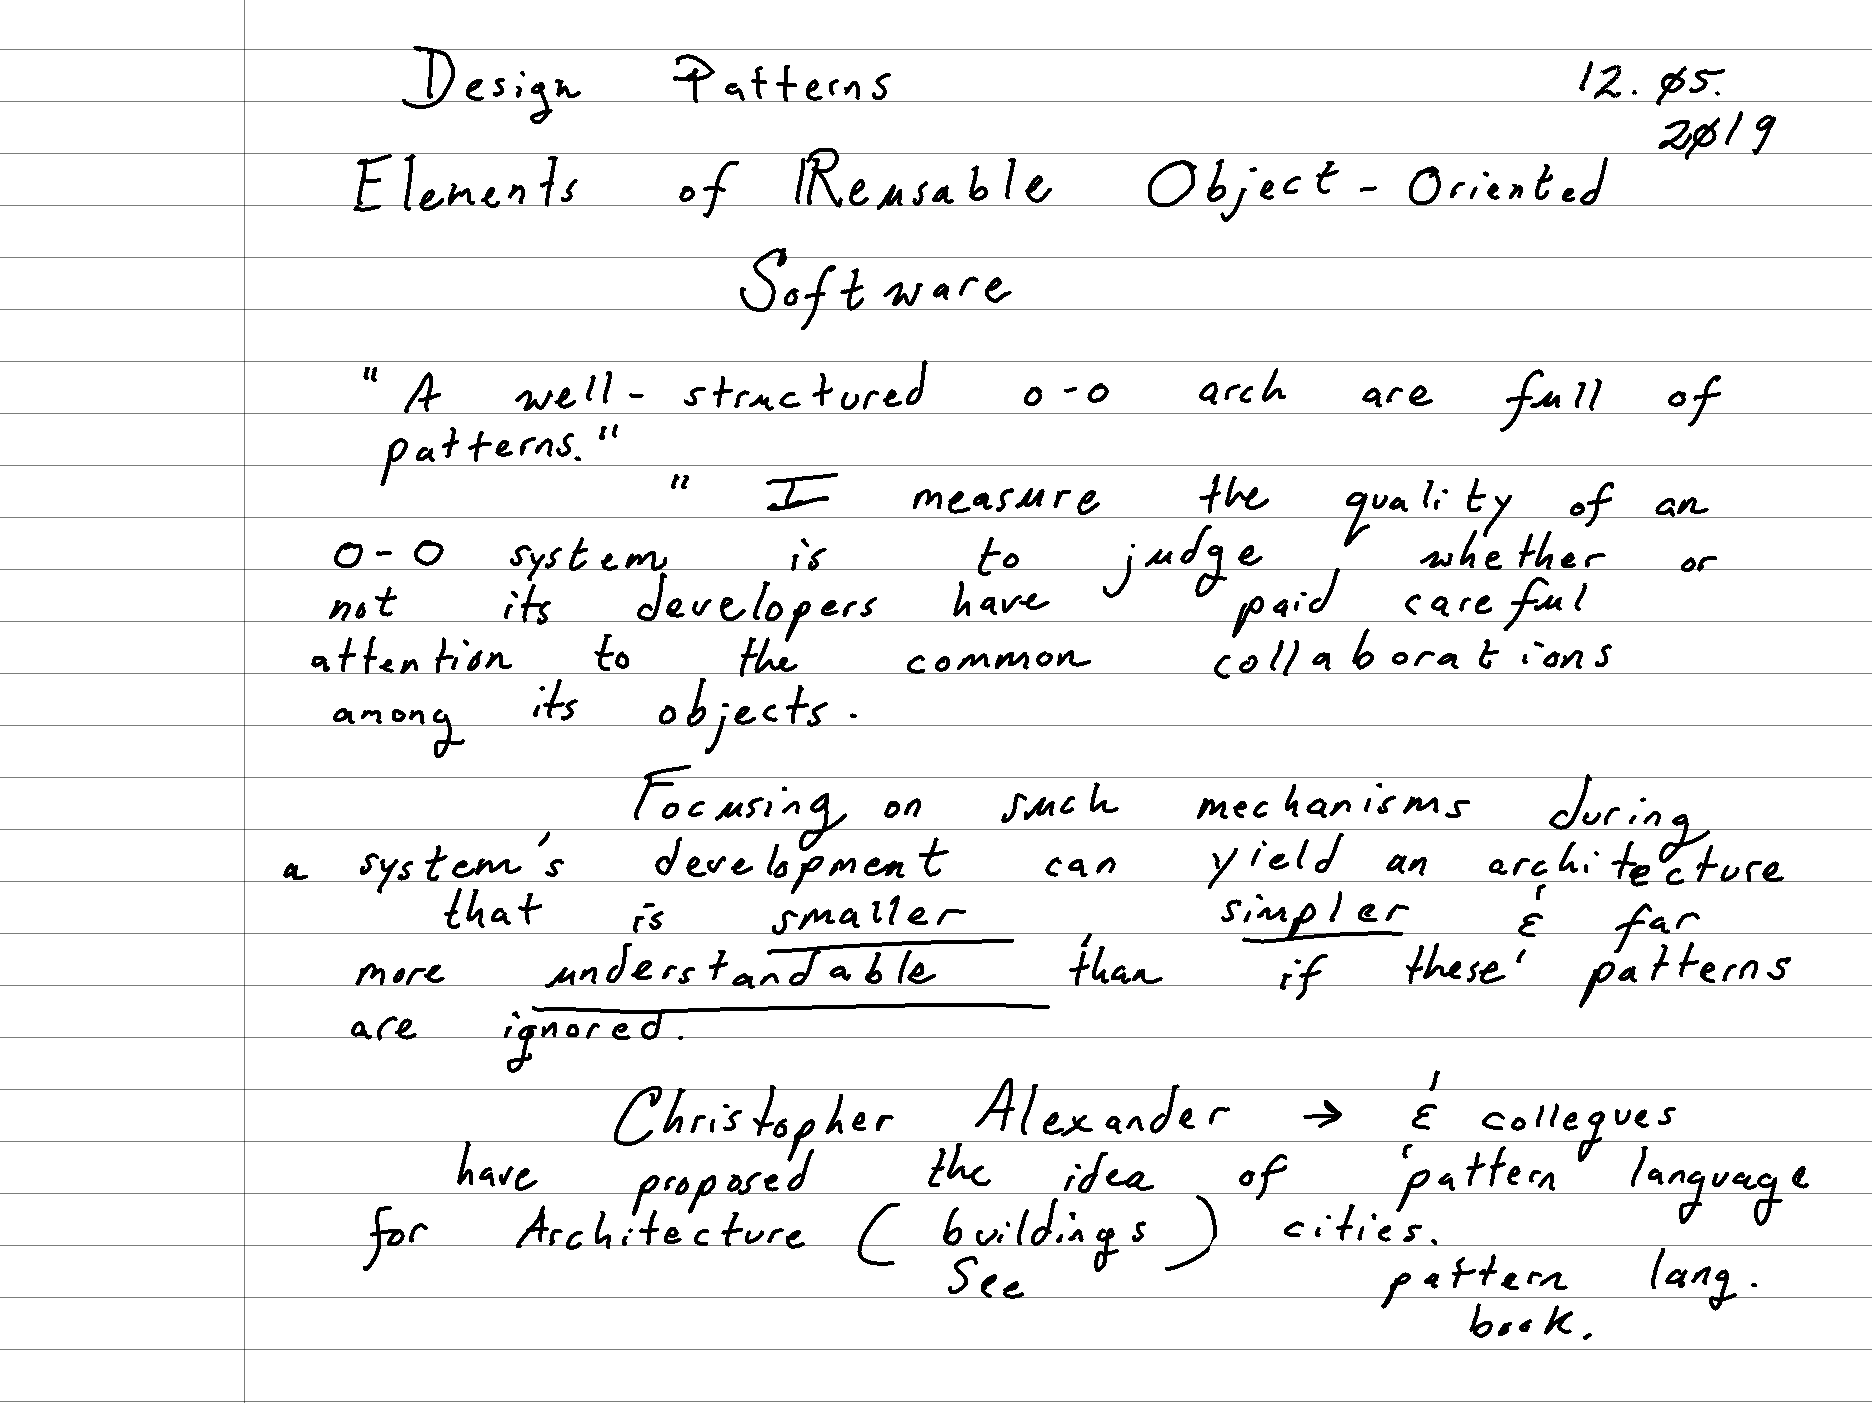 Design Patterns
12.05.
2019
Elements of Reusable Object-Oriented
Software
"A well-structured o-o arch are full of
patterns."
"I measure the quality of an
O-O system is to judge whether or
not its developers have paid careful
attention to the common collaborations
among its objects.
Focusing on such mechanisms during
a system's development can yield an architecture
that is smaller, simpler & far
more understandable than if these patterns
are ignored.
Christopher Alexander → & collegues
have proposed the idea of 'pattern' language
for Architecture (buildings) cities.
See pattern lang.
book.